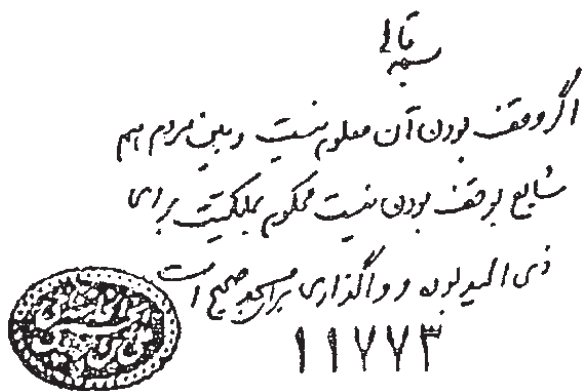 بسمه تعالی
اگر وقف بودن آن معلوم نیست و بین مردم هم
شایع بوقف بودن نیست محکوم بملکیت برای
ذی الید بوده و واگذاری برای مسجد صحیح است
۱۱۷۷۳